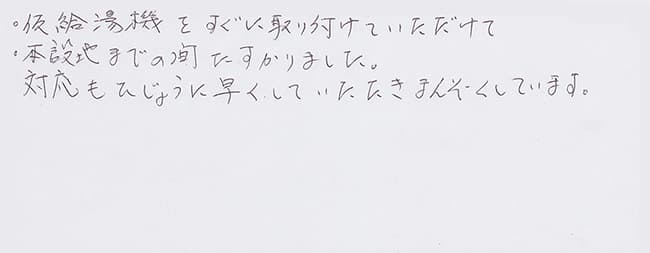 ・仮給湯機をすぐに取り付けていただけて
・本設地までの間たすかりました。
対応もひじょうに早くしていたたきまんぞくしています。